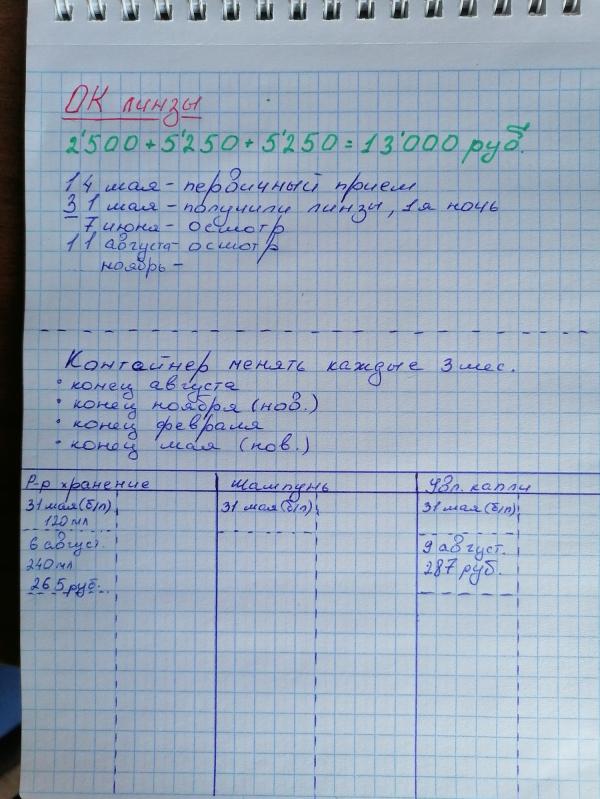 ОК линзы
2'500 + 5'250 + 5'250 = 13'000 руб.
14 мая - первичный прием
31 мая - получили линзы, 1я ночь
7 июня - осмотр
11 августа - осмотр
ноябрь -
Контайнер менять каждые 3 мес.
· конец августа
· конец ноября (нов.)
· конец февраля
· конец мая (нов.)
Р-р хранение
Шампунь
Увл. капли
31 мая (б/п)
120 мл
31 мая (б/п)
31 мая (б/п)
6 август.
240 мл
265 руб.
9 август.
287 руб.